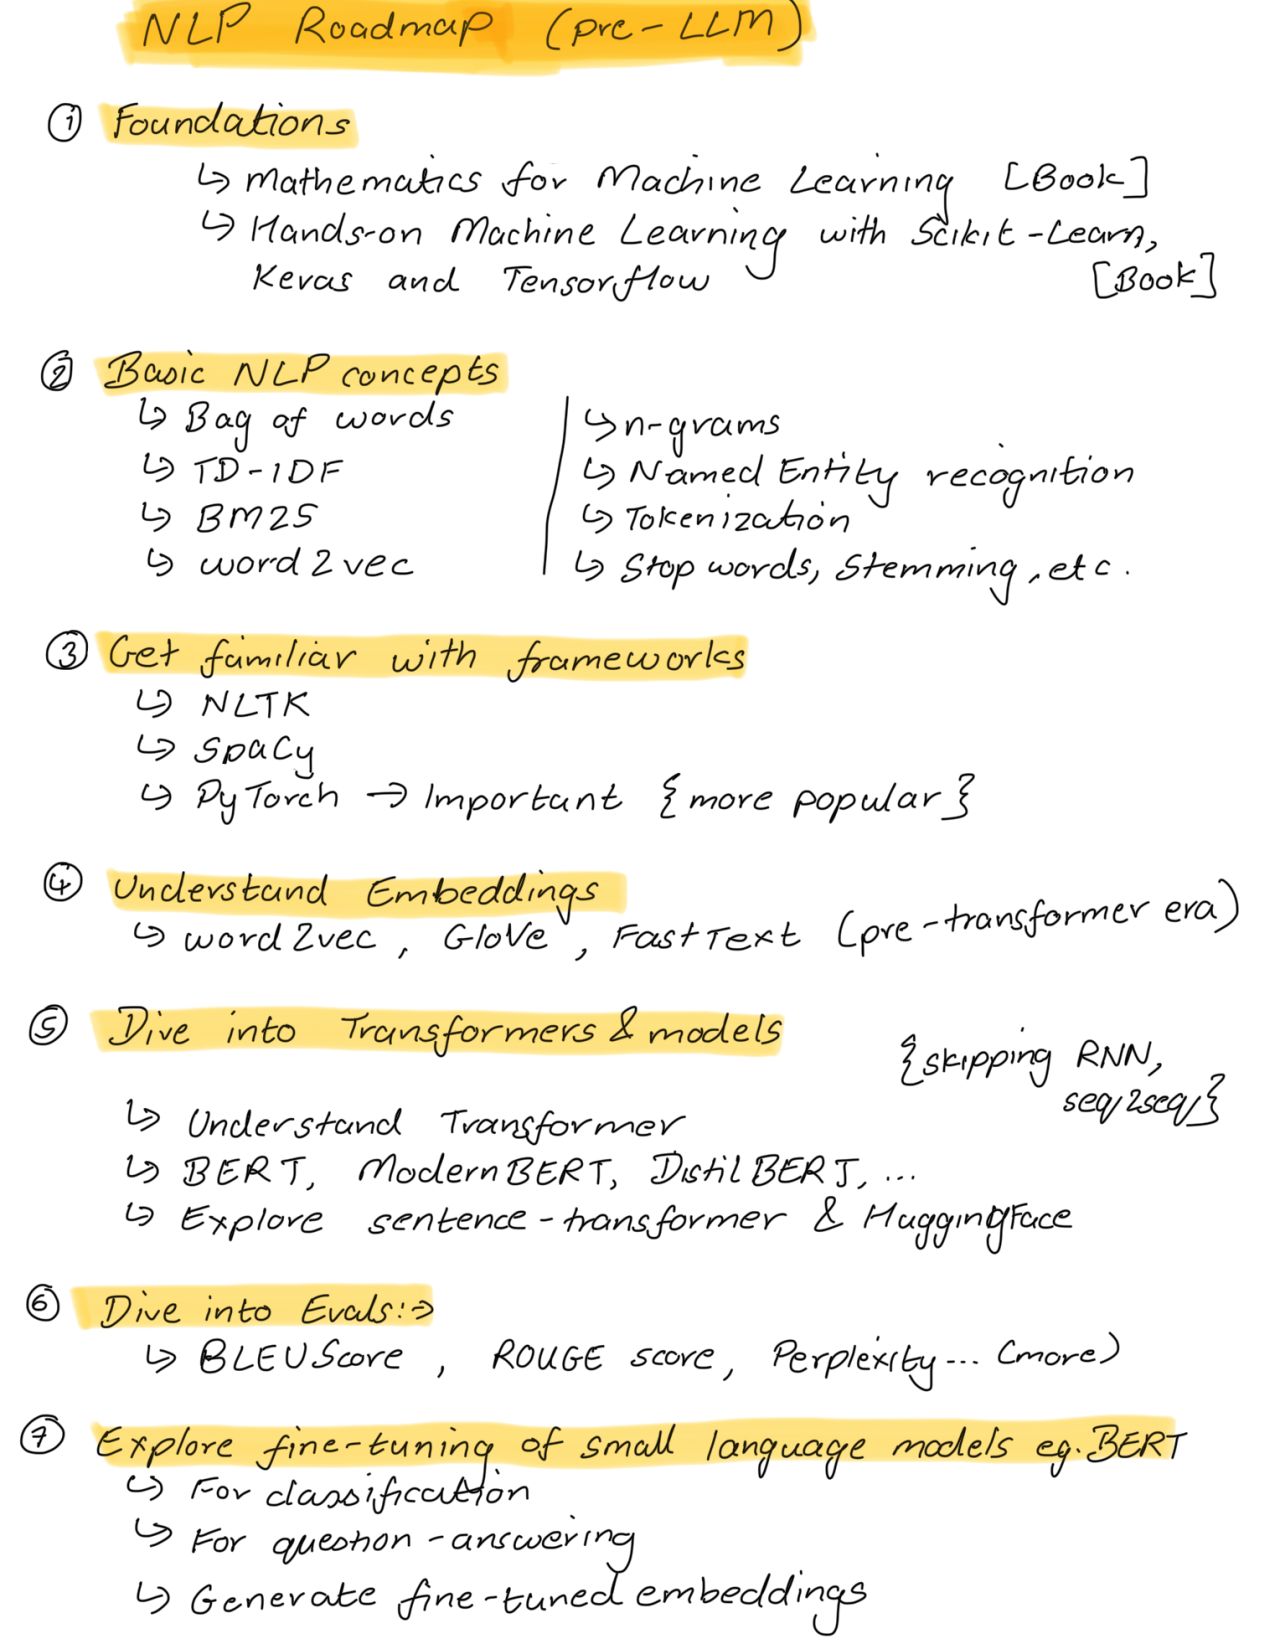 NLP Roadmap (pre-LLM)
① Foundations
↳ Mathematics for Machine Learning [Book]
↳ Hands-on Machine Learning with Scikit-Learn,
Keras and Tensorflow [Book]
② Basic NLP concepts
↳ Bag of words
↳ TD-IDF
↳ BM25
↳ word2vec
↳ n-grams
↳ Named Entity recognition
↳ Tokenization
↳ Stop words, Stemming, etc.
③ Get familiar with frameworks
↳ NLTK
↳ SpaCy
↳ PyTorch → Important {more popular}
④ Understand Embeddings
↳ word2vec, GloVe, FastText (pre-transformer era)
⑤ Dive into Transformers & models
{skipping RNN,
seq2seq}
↳ Understand Transformer
↳ BERT, ModernBERT, DistilBERT, ...
↳ Explore sentence-transformer & HuggingFace
⑥ Dive into Evals:→
↳ BLEU Score, ROUGE score, Perplexity... (more)
⑦ Explore fine-tuning of small language models eg. BERT
↳ For classification
↳ For question-answering
↳ Generate fine-tuned embeddings